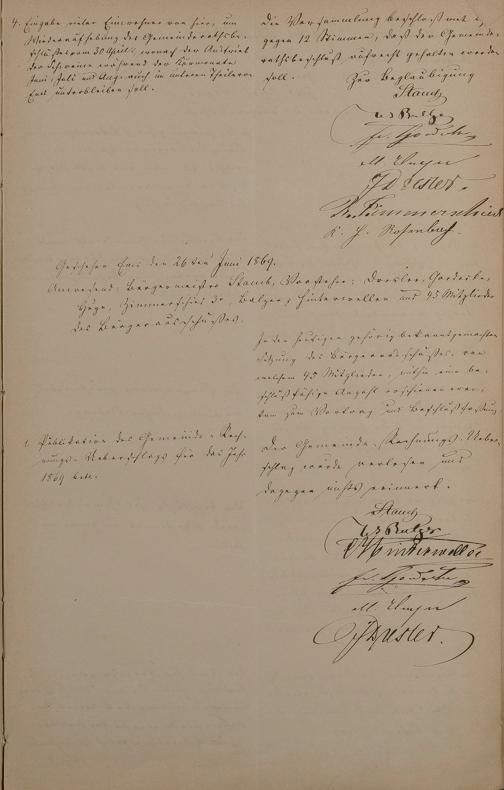 4. Eingabe vieler Einwohner von hier, um
Wiederaufhebung des Gemeinderathsbe-
schlusses vom 30 April, wonach der Austrieb
der Schweine während der Kurmonate
Juni, Juli und Aug. auch im unteren Theile von
Ems unterbleiben soll.
Die Versammlung beschloß mit
gegen 12 Stimmen, daß der Gemeinde-
rathsbeschluß aufrecht gehalten werden
soll.
Zur Beglaubigung
Stauch
Balzer
Fr.
M.
J Dresler.
Zimmerschied
K. H. Rosenbach.
Geschehen Ems den 26ten Juni 1869.
Anwesend: Bürgermeister Stauch, Vorsteher: Dresler,
Zimmerschied, Balzer, Hinterwellen und 45 Mitglieder
des Bürgerausschusses.
In der heutigen gehörig bekanntgemachten
Sitzung des Bürgerausschusses, von
welchem 45 Mitglieder, mithin eine be-
schlußfähige Anzahl erschienen war,
kam zum Vortrag und Beschlußfassung
1. Publikation des Gemeinde-Rech-
nungs-Ueberschlags für das Jahr
1869
Der Gemeinde-Rechnungs-Ueber-
schlag wurde verlesen und
dagegen nichts erinnert.
Stauch
Balzer
Fr.
M.
J Dresler.